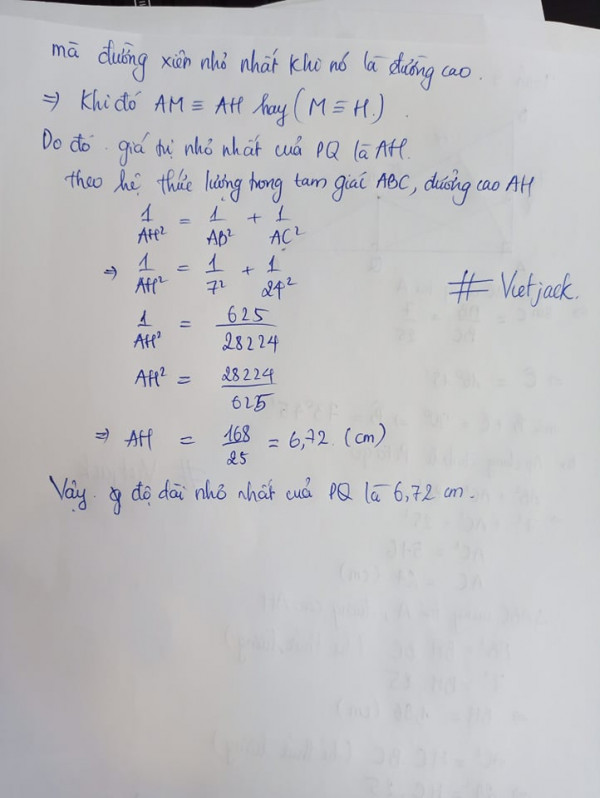 mà đường xiên nhỏ nhất khi nó là đường cao.
⇒ Khi đó AM ≡ AH hay (M ≡ H.)
Do đó. giá trị nhỏ nhất cuả PQ là AH.
theo hệ thức lượng trong tam giác ABC, đường cao AH
1/AH² = 1/AB² + 1/AC²
⇒ 1/AH² = 1/7² + 1/24²
# Vietjack.
1/AH² = 625/28224
AH² = 28224/625
⇒ AH = 168/25 = 6,72. (cm)
Vậy. độ dài nhỏ nhất cuả PQ là 6,72 cm.